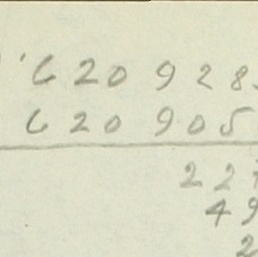 620928
620905
22
49
2